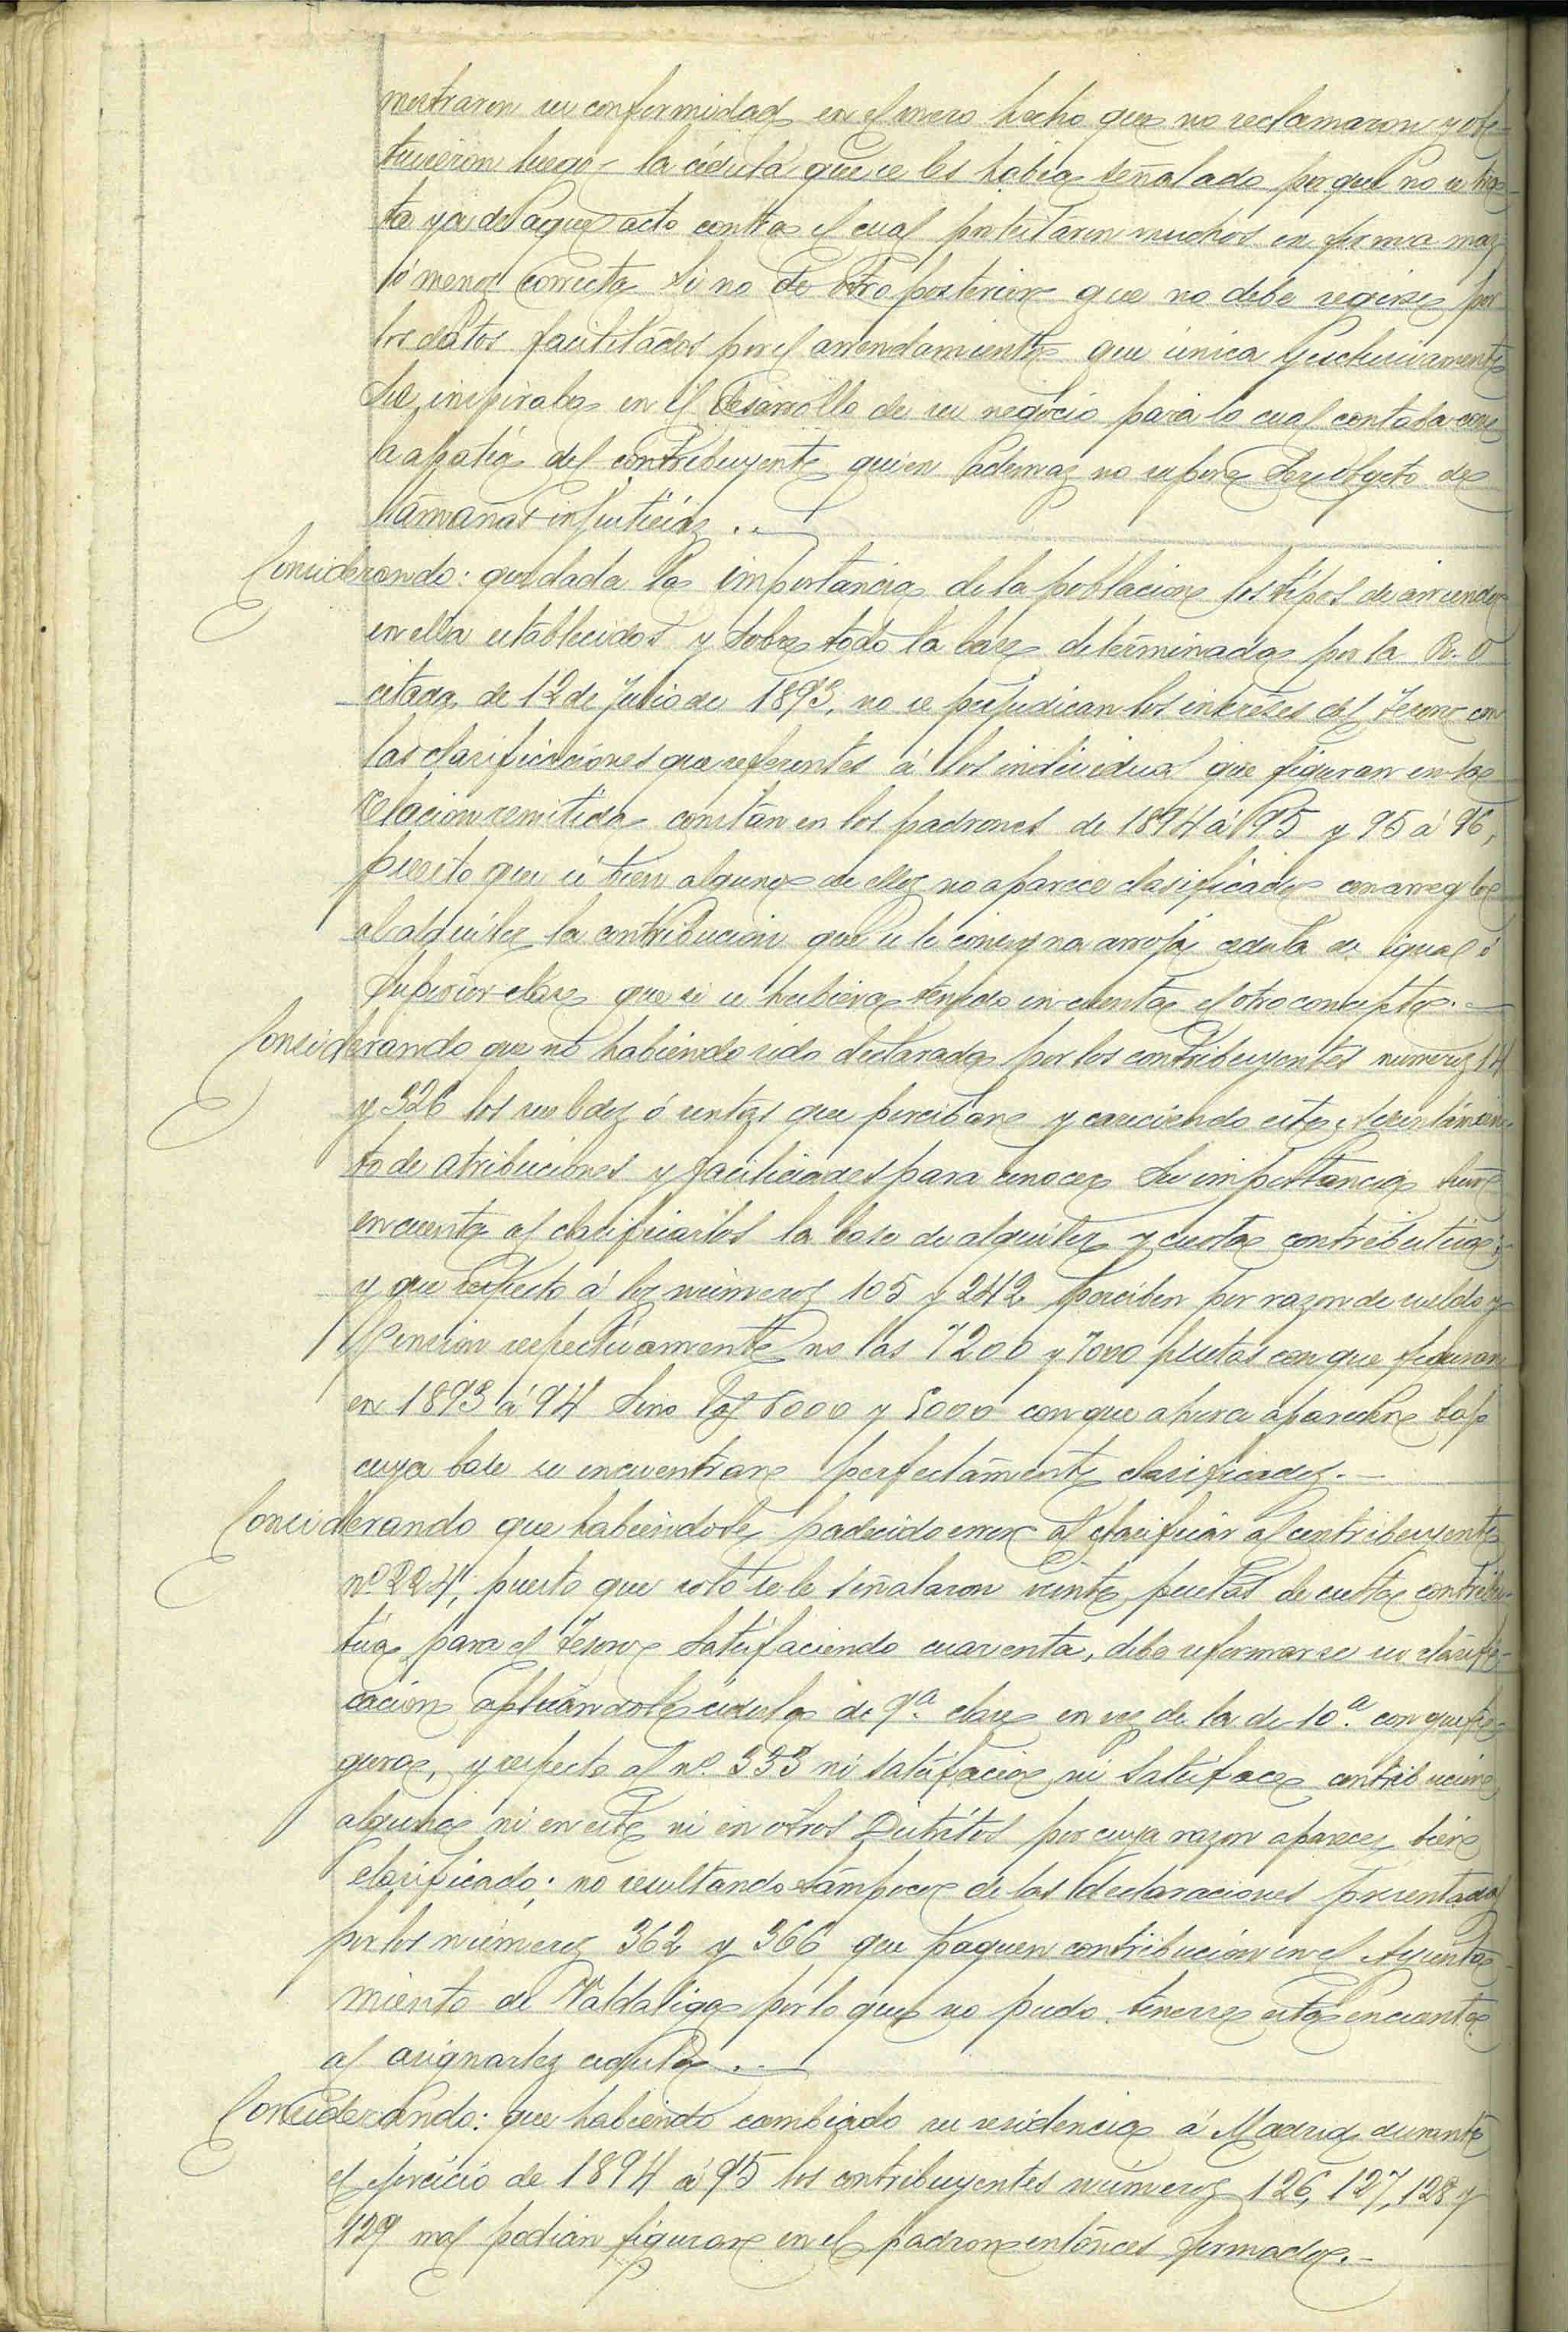 mostraron su conformidad en el mero hecho que no reclamaron y ob-
tuvieron luego la cédula que se les habia señalado porque no se tra-
ta ya de aquel acto contra el cual protestaron muchos en forma mas
ó menos correcta si no de otro posterior que no debe regirse por
los datos facilitados por el arrendamiento que única y esclusivamente
se inspiraba en el desarrollo de su negocio para lo cual contaba con
la apatia del contribuyente quien ademas no supone ser objeto de
tamañas injusticias. . —
Considerando: que dada la importancia de la poblacion los tipos de arriendo
en ella establecidos y sobre todo la base determinada por la R. O
citada de 12 de Julio de 1893, no se perjudican los intereses del Tesoro con
las clasificaciones que referentes á los individuos que figuran en la
relacion remitida constan en los padrones de 1894 á 95 y 95 á 96,
puesto que si bien alguno de ellos no aparece clasificado con arreglo
al alquiler la contribucion que se le consigna arroja cedula de igual ó
superior clase que si se hubiera tenido en cuenta el otro concepto. —
Considerando que no habiendo sido declarado por los contribuyentes numeros 14
y 326 los sueldos ó rentas que perciban y careciendo este Ayuntamien-
to de atribuciones y facilidades para conocer su importancia tuvo
en cuenta al clasificarlos la base de alquiler y cuota contributiva;
y que respecto á los números 105 y 242 perciben por razon de sueldo y
Pension respectivamente no las 7200 y 7000 pesetas con que figuran
en 1893 á 94 sino las 6000 y 5000 con que ahora aparecen bajo
cuya base se encuentran perfectamente clasificados. —
Considerando que habiendose padecido error al clasificar al contribuyente
nº 224, puesto que solo se le señalaron veinte pesetas de cuota contribu-
tiva para el Tesoro satisfaciendo cuarenta, debe reformarse su clasifi-
cacion aplicandole cédula de 9.ª clase en vez de la de 10.ª con que fi-
gura, y respecto al nº. 333 ni satisfacia ni satisface contribucion
alguna ni en este ni en otros Distritos por cuya razon aparece bien
clasificado; no resultando tampoco de las declaraciones presentadas
por los números 362 y 366 que paguen contribución en el Ayunta-
miento de Valdaliga por lo que no pudo tenerse esta en cuenta
al asignarles cedula. . —
Considerando: que habiendo cambiado su residencia á Madrid durante
el ejercicio de 1894 á 95 los contribuyentes números 126, 127, 128 y
129 mal podian figurar en el padron entónces formado. —